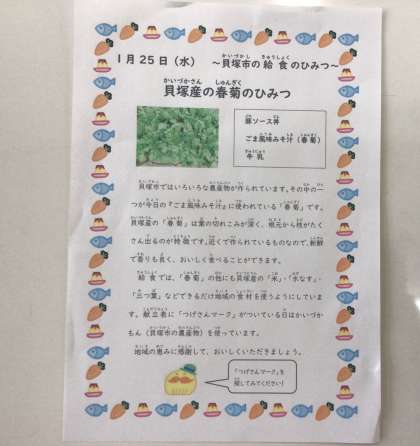 1月25日（水）　～貝塚市の給食のひみつ～
貝塚産の春菊のひみつ
豚ソース丼
ごま風味みそ汁（春菊）
牛乳
貝塚市ではいろいろな農産物が作られています。その中の一
つが今日の『ごま風味みそ汁』に使われている「春菊」です。
貝塚産の「春菊」は葉の切れこみが深く、根元から枝がたく
さん出るのが特徴です。近くで作られているものなので、新鮮
で香りも良く、おいしく食べることができます。
給食では、「春菊」の他にも貝塚産の「米」・「水なす」・
「三つ葉」などできるだけ地域の食材を使うようにしていま
す。献立表に「つげさんマーク」がついている日はかいづか
もん（貝塚市の農産物）を使っています。
地域の恵みに感謝して、おいしくいただきましょう。
「つげさんマーク」を
探してみてください！